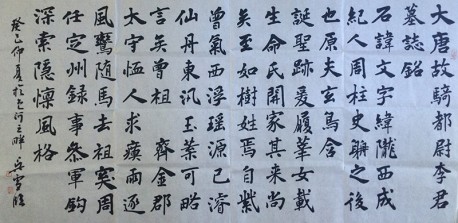 大唐故騎都尉李君
墓誌銘
石諱文字緯隴西成
紀人周柱史聃之後
也原夫爰烏含
誕聖哉履華女載
生命氏開家其来尚
矣至如樹姓異自紫
氣西浮瑶源已濬
仙丹東汎玉葉可略
言矣曾祖 齊金郡
太守恤人求瘼雨逐
風驚随馬去祖突周
任定州録事叅軍鈎
深索隐懍風格
癸巳仲夏於河之畔雪